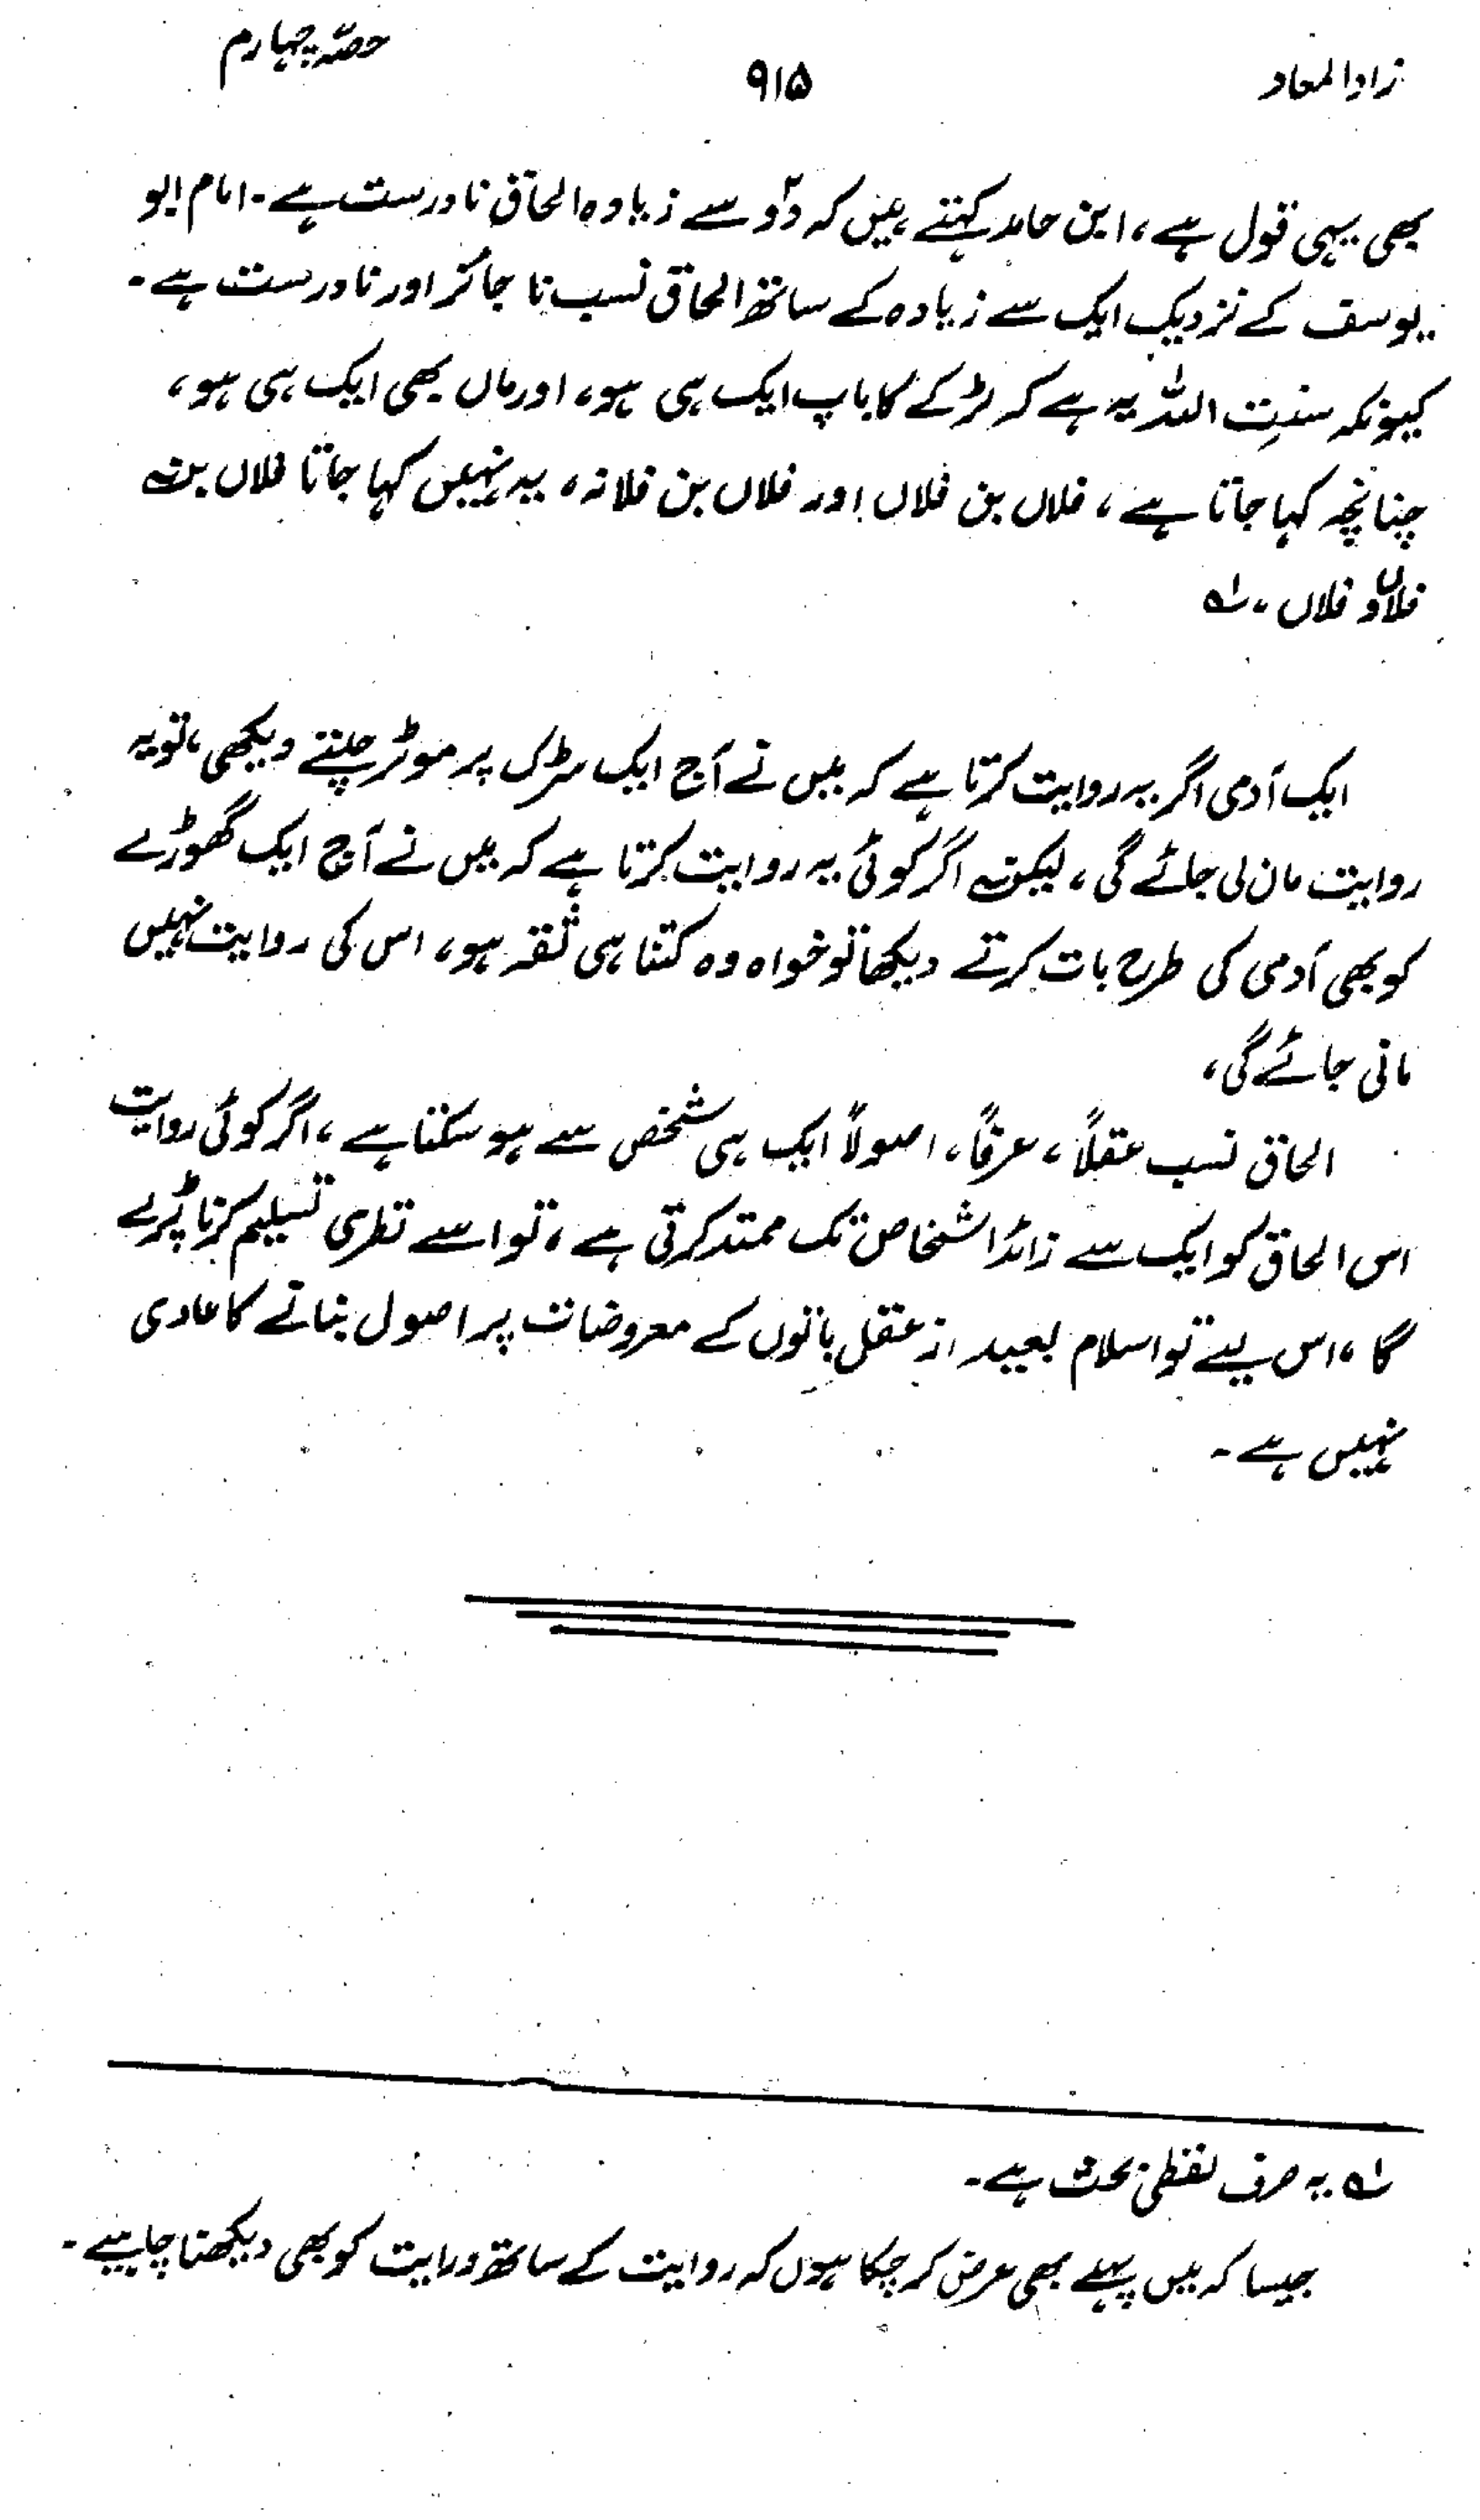 زادالمعاد ۹۱۵ حصہ چہارم
بھی یہی قول ہے، ابن حامد کہتے ہیں کہ دو سے زیادہ الحاق نادرست ہے۔ امام ابو
یوسف کے نزدیک ایک سے زیادہ کے ساتھ الحاق نسب نا جائز اور نادرست ہے۔
کیونکہ سنت اللہ یہ ہے کہ لڑکے کا باپ ایک ہی ہو، اور ماں بھی ایک ہی ہو،
چنانچہ کہا جاتا ہے، فلاں بن فلاں اور فلاں بن فلانہ، یہ نہیں کہا جاتا فلاں بن
فلاں و فلاں، ؎۱
ایک آدمی اگر یہ روایت کرتا ہے کہ میں نے آج ایک سڑک پر موٹر چلتے دیکھی، تو یہ
روایت مان لی جائے گی، لیکن اگر کوئی یہ روایت کرتا ہے کہ میں نے آج ایک گھوڑے
کو بھی آدمی کی طرح بات کرتے دیکھا تو خواہ وہ کتنا ہی ثقہ ہو، اس کی روایت نہیں
مانی جائے گی،
الحاق نسب عقلاً، عرفاً، اصولاً ایک ہی شخص سے ہو سکتا ہے، اگر کوئی روایت
اس الحاق کو ایک سے زائد اشخاص تک ممتد کرتی ہے، تو اسے نظری تسلیم کرنا پڑے
گا، اس لیے تو اسلام بعید از عقل باتوں کے معروضات پر اصول بنانے کا عادی
نہیں ہے۔
؎۱ یہ صرف لفظی بحث ہے۔
جیسا کہ میں پہلے بھی عرض کر چکا ہوں کہ روایت کے ساتھ درایت کو بھی دیکھنا چاہیے۔